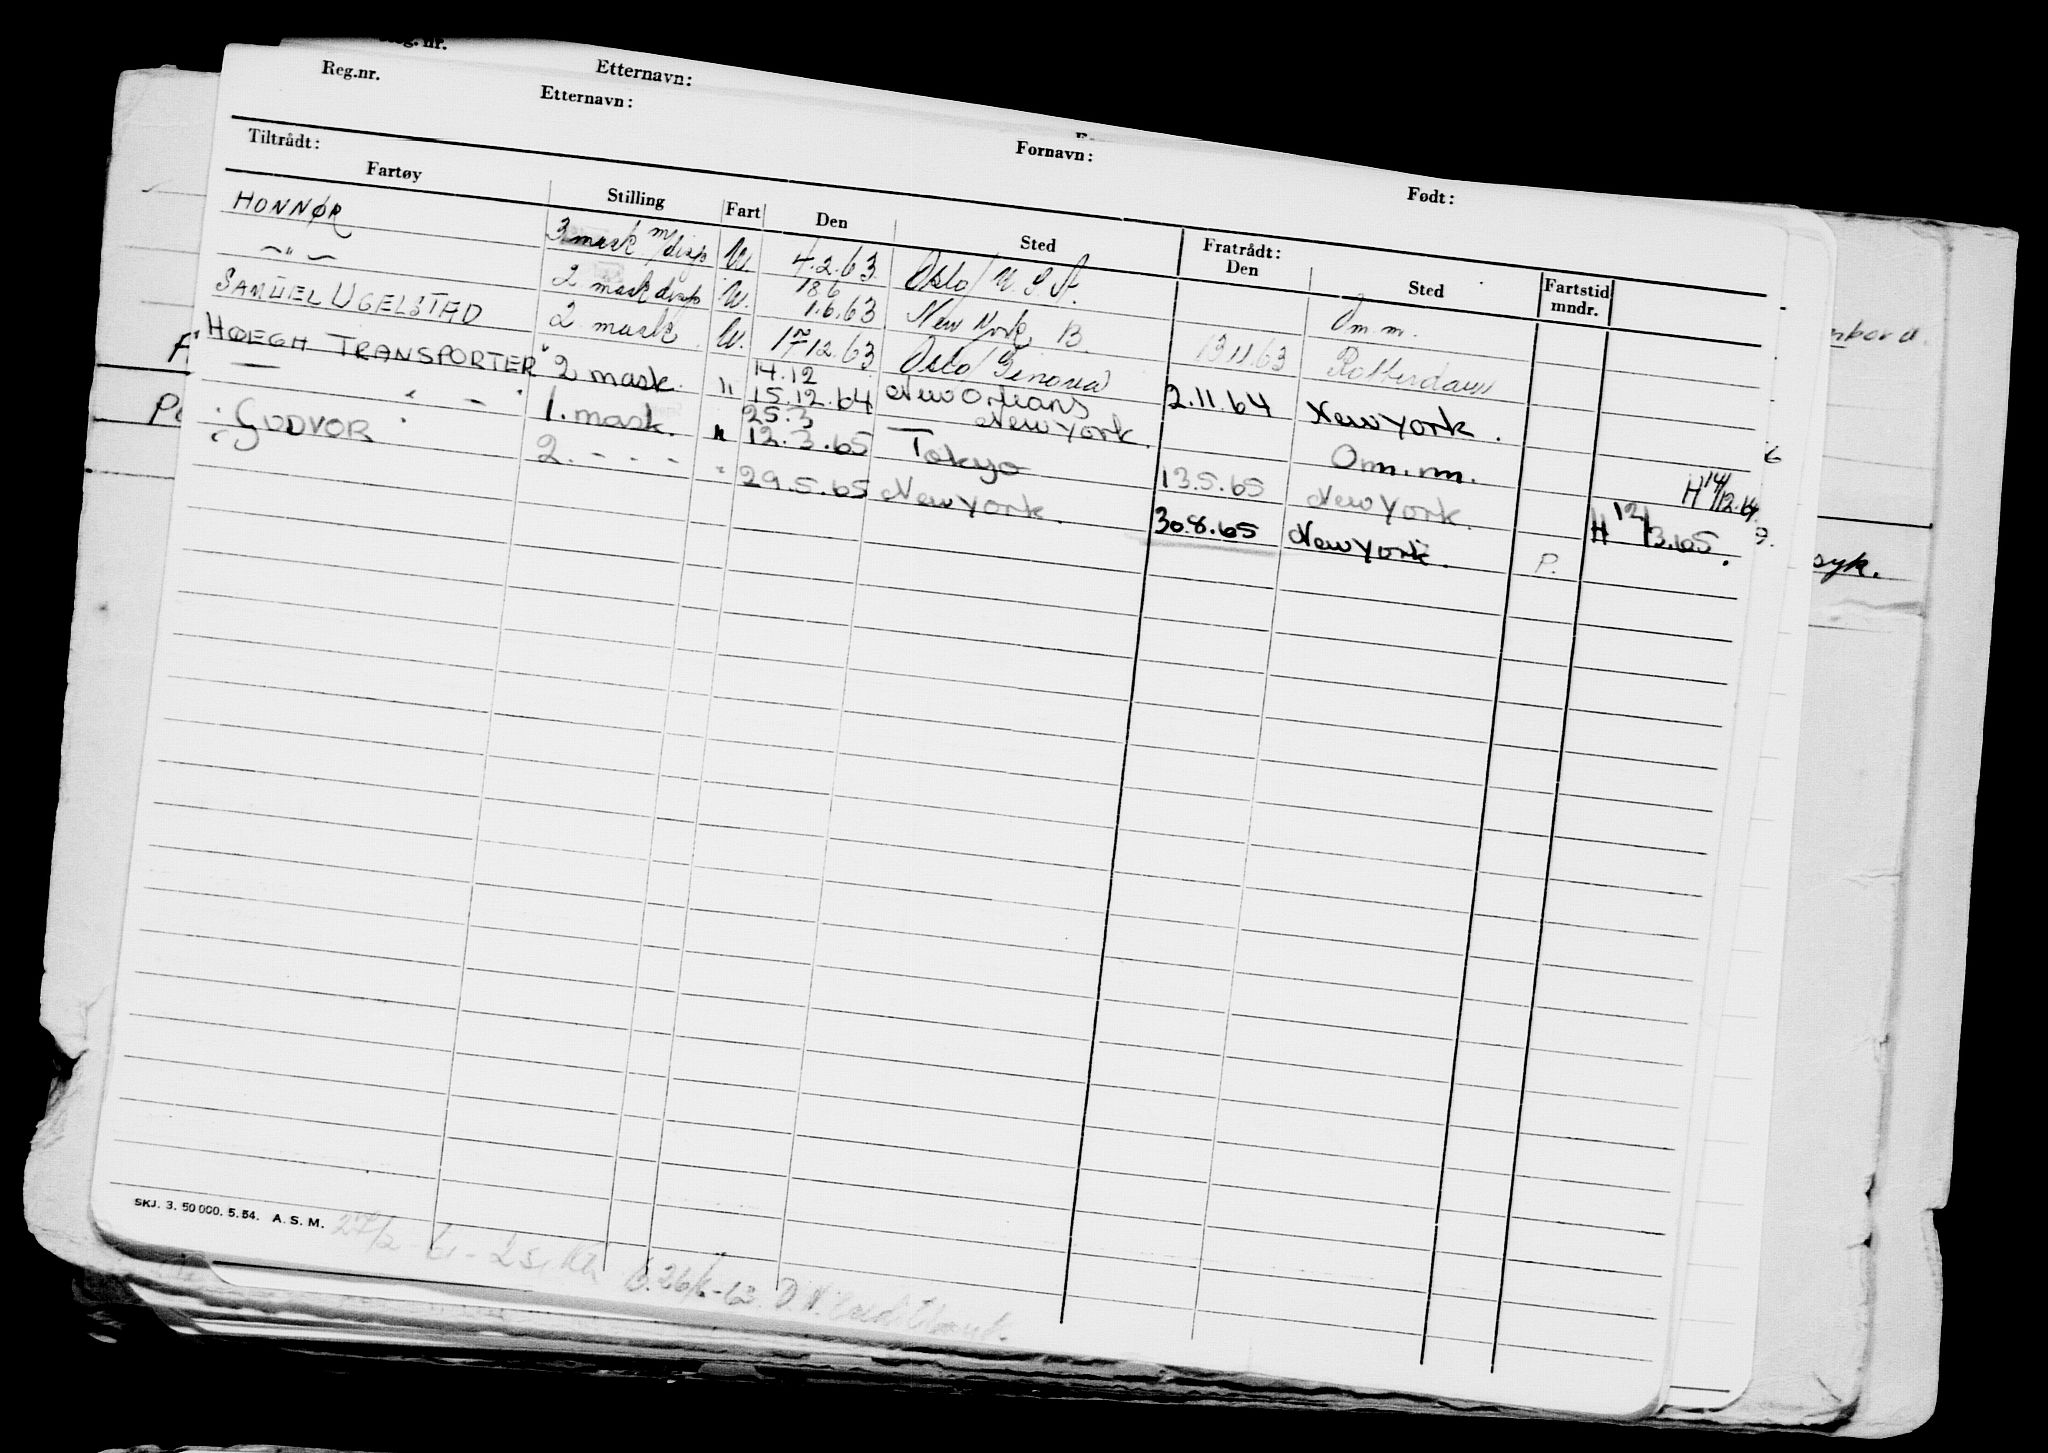 Reg.nr.
Etternavn:
Reg.nr.
Etternavn:
Fornavn:
Født:
Tiltrådt:
Fratrådt:
Fartøy Stilling Fart Den Sted Den Sted Fartstid mndr.
HONNØR 3 mask m/disp W. 4.2.63 Oslo/U.S.A. Om.m.
—"— 2 mask disp W. 18.6 1.6.63 New York B. 13.11.63 Rotterdam
SAMUEL UGELSTAD 2 mask W. 17.12.63 Oslo/Genova 2.11.64 New York.
HØEGH TRANSPORTER" 2 mask. " 14.12 15.12.64 New Orleans New York. Om.m. H 14/12.64
— " — 1. mask. " 25.3 12.3.65 Tokyo 13.5.65 New York. H 12/3.65.
GUDVOR 2. - - - " 29.5.65 New York. 30.8.65 New York. P.
syk.
SKJ. 3. 50 000. 5.54. A. S. M.